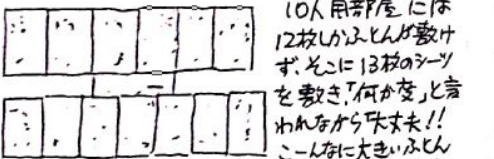 10人用部屋には
12枚しかふとんが敷け
ず、そこに13枚のシーツ
を敷き、「何か変」と言
われながら「大丈夫!!
こーんなに大きいふとん